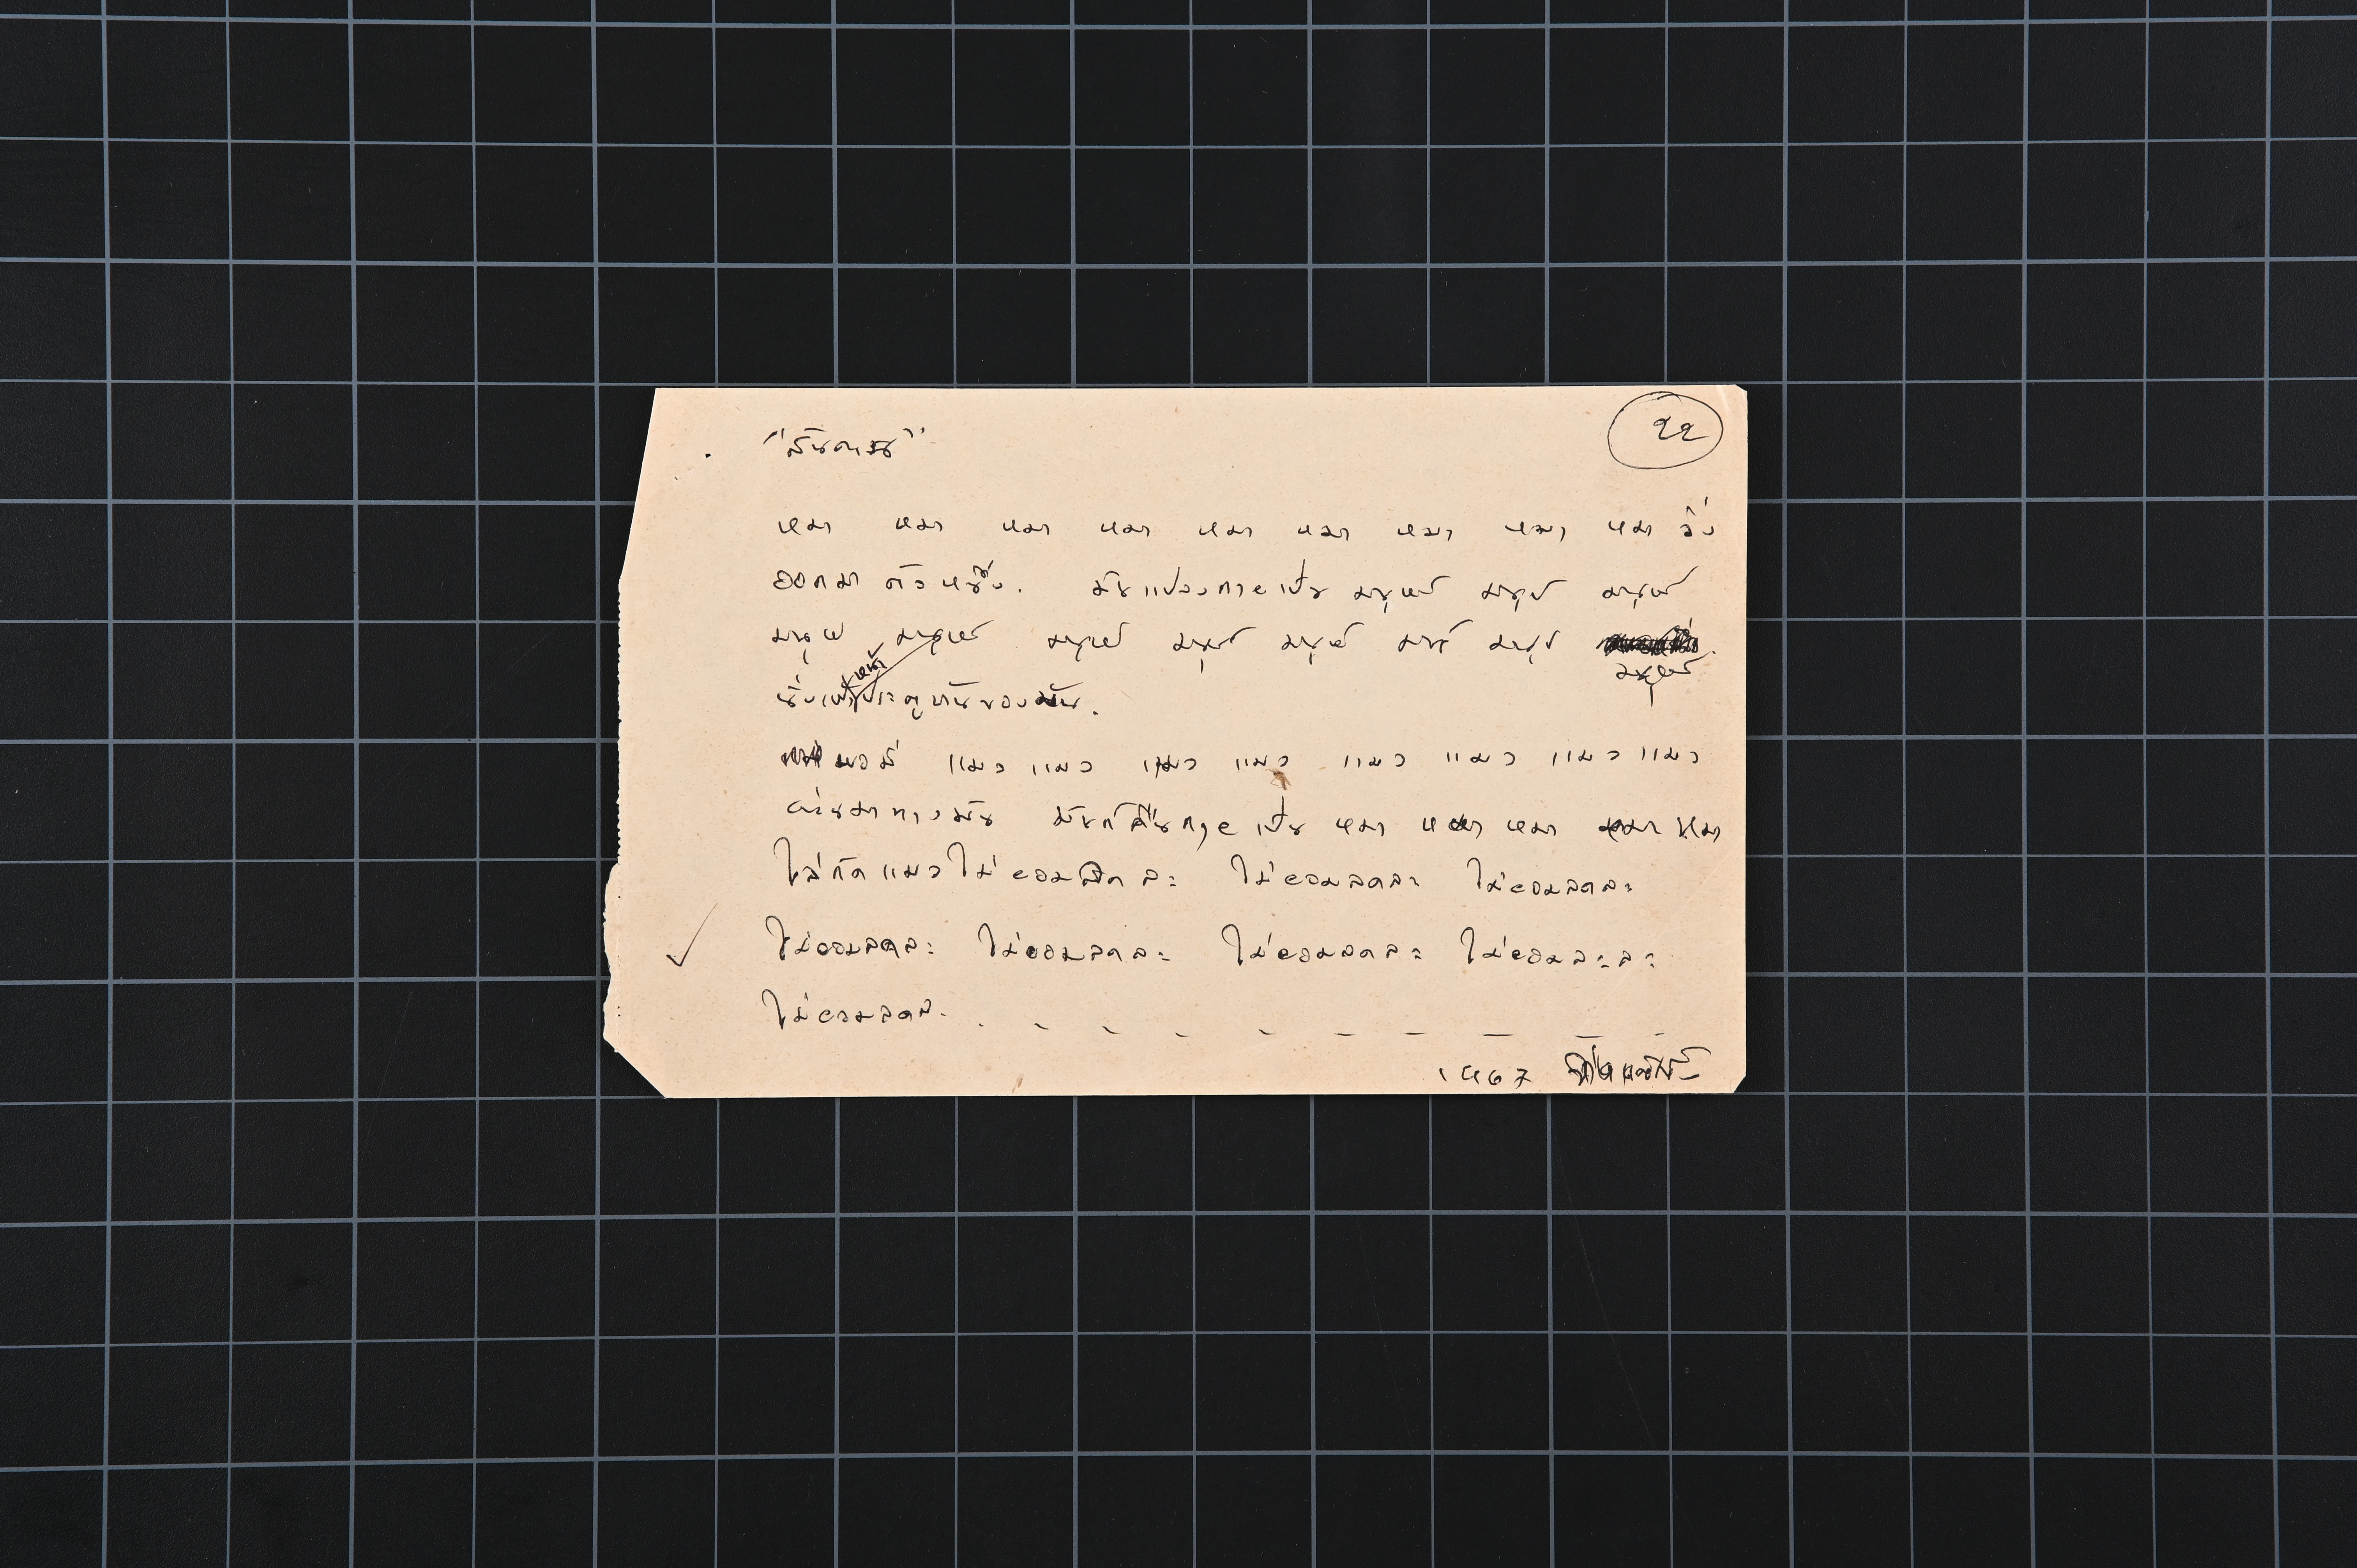 ๒๒
"สันดาน"
หมา หมา หมา หมา หมา หมา หมา หมา หมา วิ่ง
ออกมา ตัวหนึ่ง. มันแปลงกายเป็น มนุษย์ มนุษย์ มนุษย์
มนุษย์ มนุษย์ มนุษย์ มนุษย์ มนุษย์ มนุษย์ มนุษย์
มนุษย์
หน้า
นั่งเฝ้าประตูบ้านของมัน.
พอมี แมว แมว แมว แมว แมว แมว แมว แมว
ผ่านมาทางมัน มันก็คืนกายเป็น หมา หมา หมา หมา หมา
ไล่กัดแมวไม่ยอมลดละ ไม่ยอมลดละ ไม่ยอมลดละ
ไม่ยอมลดละ ไม่ยอมลดละ ไม่ยอมลดละ ไม่ยอมละละ
ไม่ยอมลดล. . - - - - - - - - -
1967